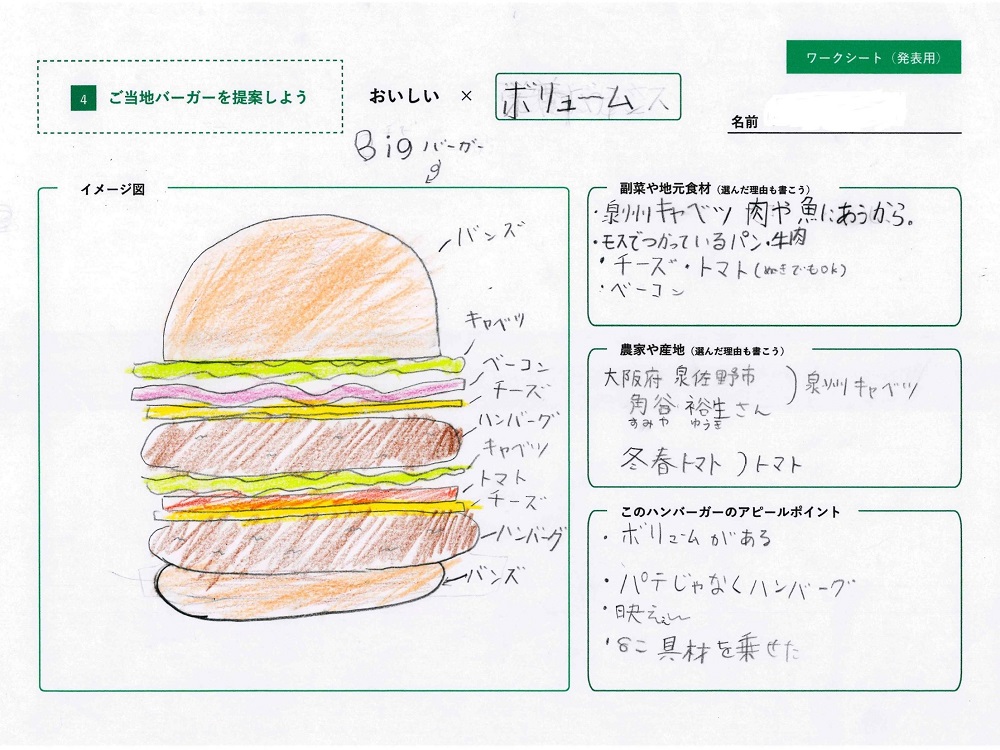 ワークシート（発表用）
4 ご当地バーガーを提案しよう
おいしい × ボリューム
名前
Bigバーガー
イメージ図
バンズ
キャベツ
ベーコン
チーズ
ハンバーグ
キャベツ
トマト
チーズ
ハンバーグ
バンズ
副菜や地元食材（選んだ理由も書こう）
・泉州キャベツ 肉や魚にあうから。
・モスでつかっているパン・牛肉
・チーズ・トマト(ぬきでもOK)
・ベーコン
農家や産地（選んだ理由も書こう）
大阪府 泉佐野市
角谷 裕生さん
すみや ゆうき
)泉州キャベツ
冬春トマト)トマト
このハンバーガーのアピールポイント
・ボリュームがある
・パテじゃなくハンバーグ
・映えぇ〜
・8こ 具材を乗せた